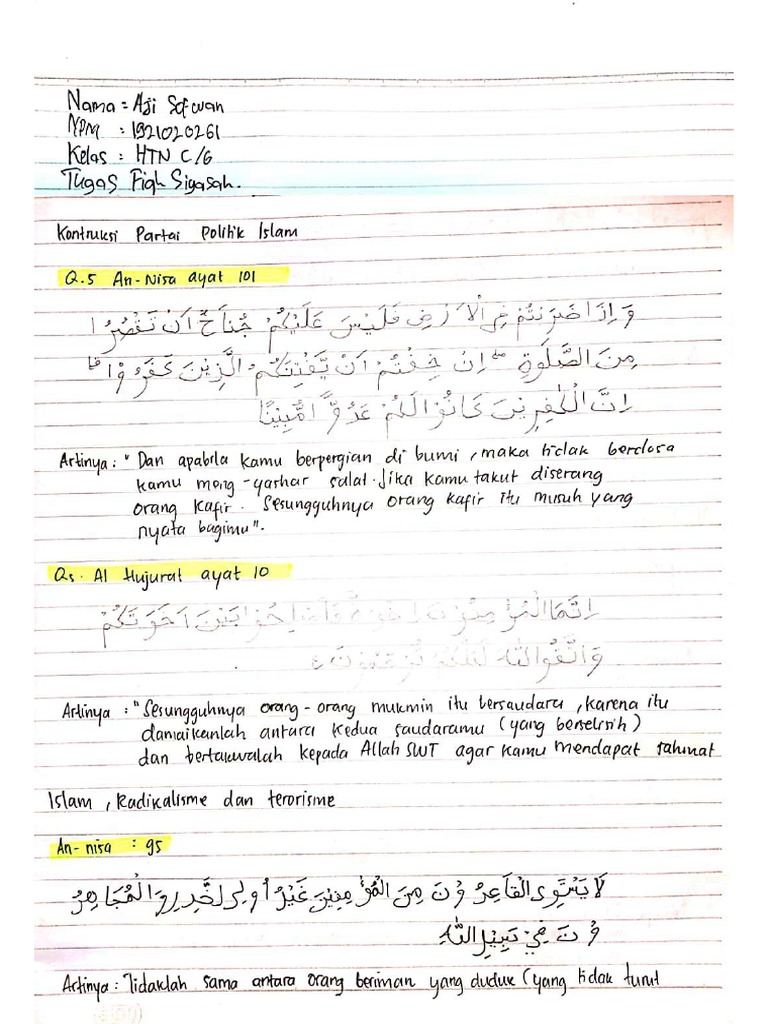 Nama = Aji Sofwan
NPM : 1921020261
Kelas : HTN C/G
Tugas Fiqh Siyasah.
Kontruksi Partai Politik Islam
Q.S An-Nisa ayat 101
وَاِذَا ضَرَبْتُمْ فِى الْاَرْضِ فَلَيْسَ عَلَيْكُمْ جُنَاحٌ اَنْ تَقْصُرُوْا
مِنَ الصَّلٰوةِ اِنْ خِفْتُمْ اَنْ يَّفْتِنَكُمُ الَّذِيْنَ كَفَرُوْا
اِنَّ الْكٰفِرِيْنَ كَانُوْا لَكُمْ عَدُوًّا مُّبِيْنًا
Artinya : " Dan apabila kamu berpergian di bumi , maka tidak berdosa
kamu meng-qashar salat. Jika kamu takut diserang
orang kafir. Sesungguhnya orang kafir itu musuh yang
nyata bagimu".
Qs. Al Hujurat ayat 10
اِنَّمَا الْمُؤْمِنُوْنَ اِخْوَةٌ بَيْنَ اَخَوَيْكُمْ
وَاتَّقُوا اللّٰهَ
Artinya : "Sesungguhnya orang-orang mukmin itu bersaudara , karena itu
damaikanlah antara kedua saudaramu (yang berselisih)
dan bertakwalah kepada Allah SWT agar kamu mendapat rahmat
Islam , Radikalisme dan terorisme
An-nisa : 95
لَا يَسْتَوِى الْقَاعِدُوْنَ مِنَ الْمُؤْمِنِيْنَ غَيْرُ اُولِى الضَّرَرِ وَالْمُجَاهِدُ
وْنَ فِيْ سَبِيْلِ اللّٰهِ
Artinya : Tidaklah sama antara orang beriman yang duduk (yang tidak turut